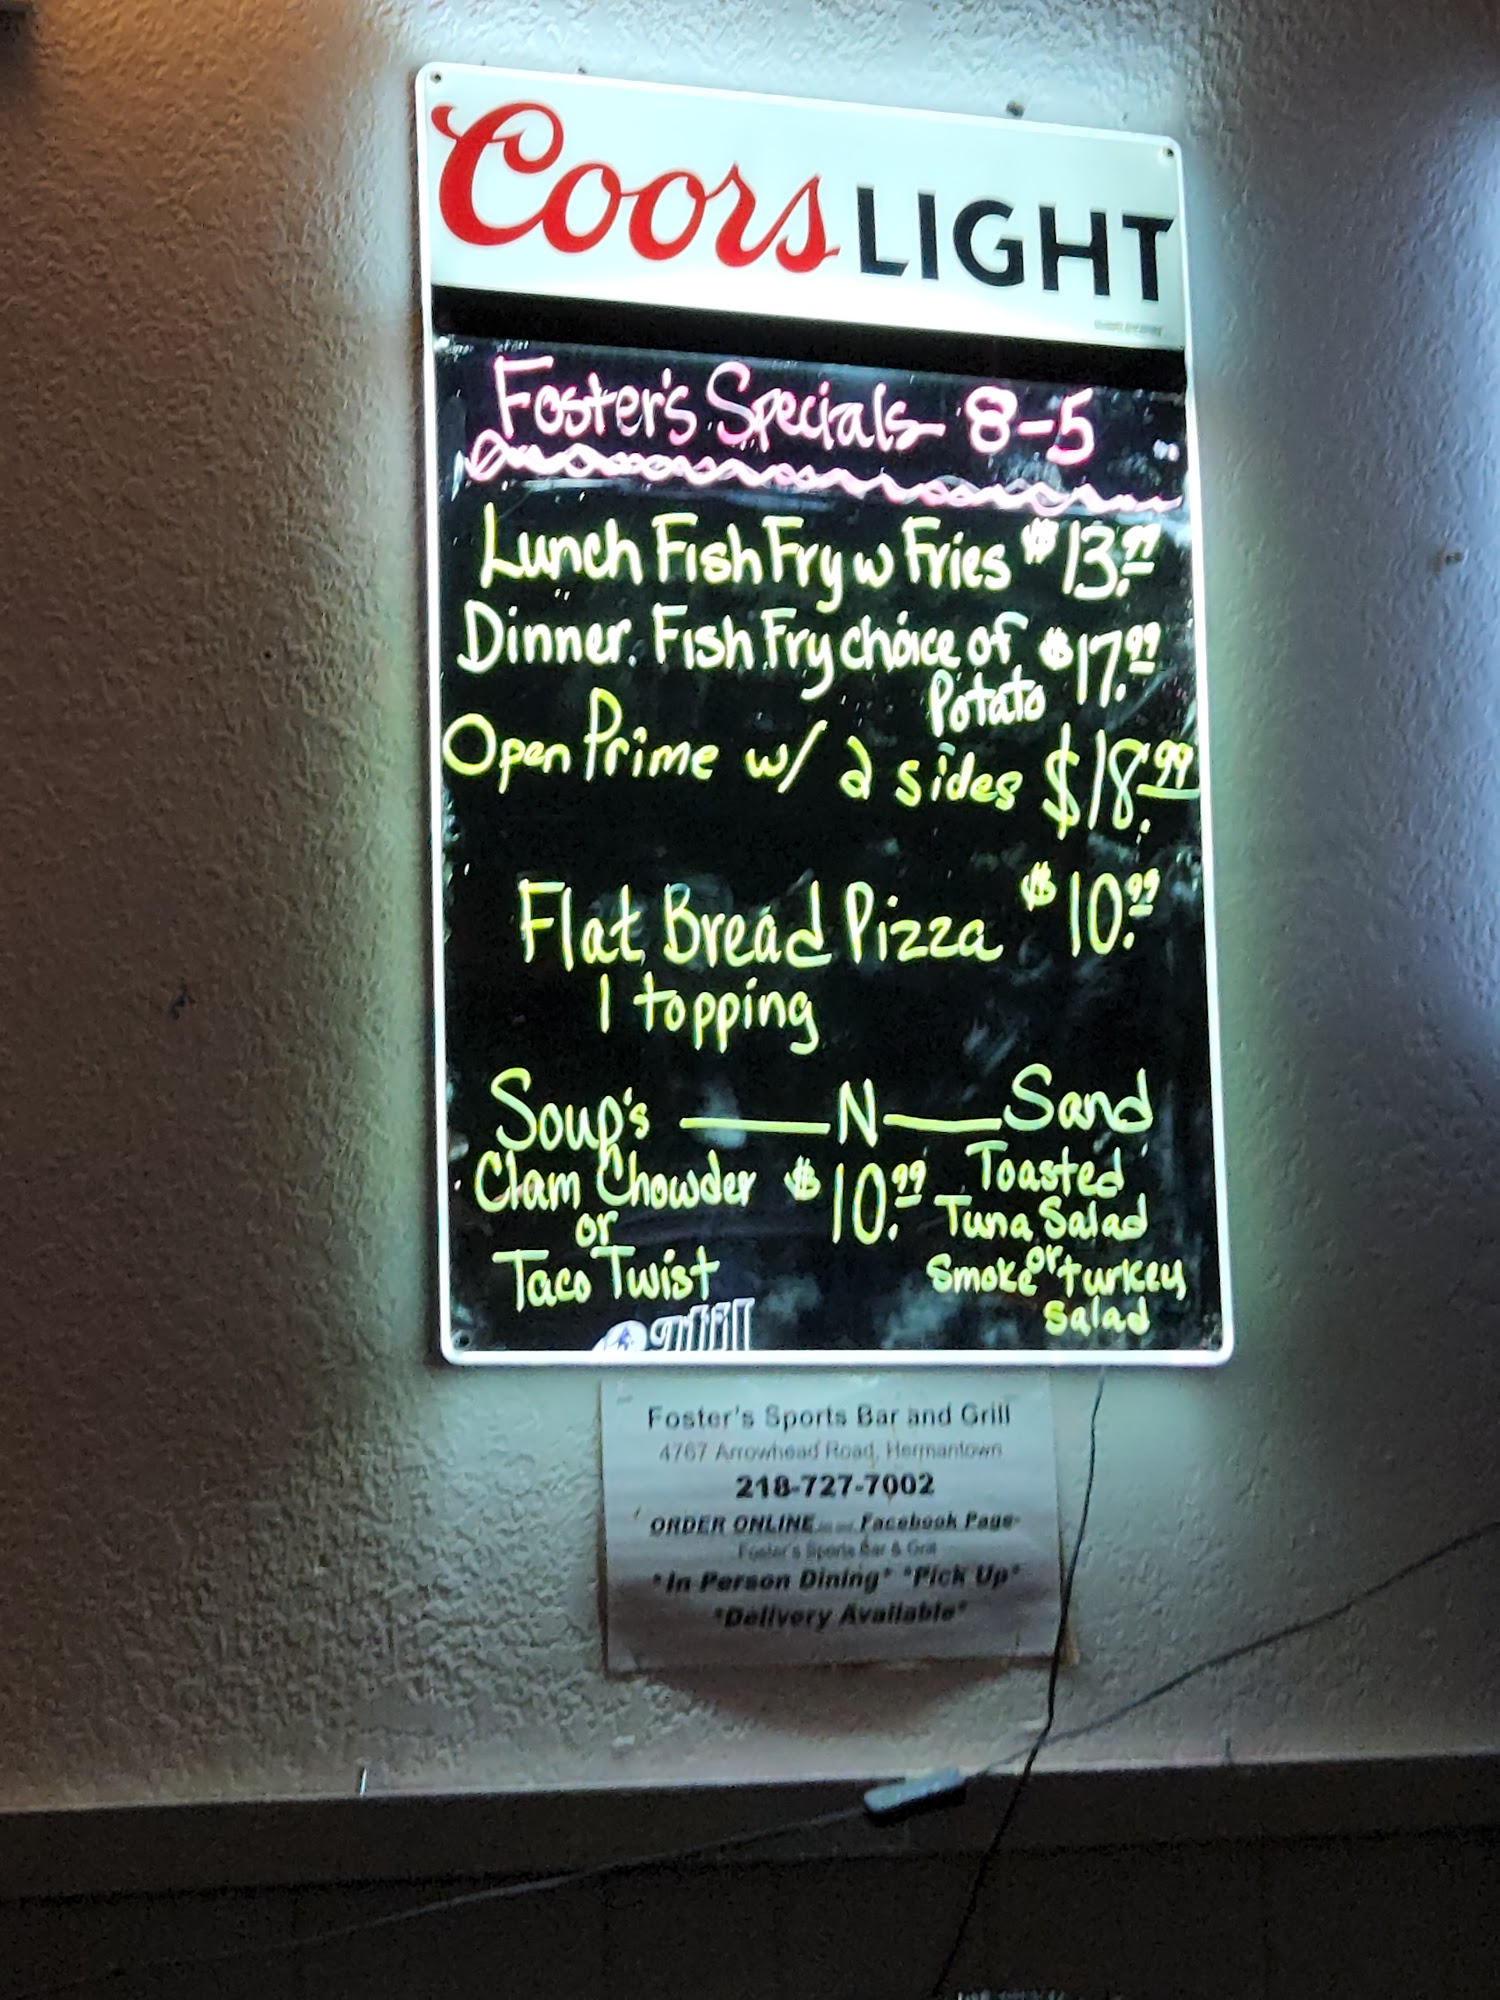 Coors LIGHT
Foster's Specials 8-5
Lunch Fish Fry w Fries $13.99
Dinner Fish Fry choice of $17.99
Potato
Open Prime w/ 2 sides $18.99
Flat Bread Pizza $10.99
1 topping
Soup's — N — Sand
Clam Chowder $10.99 Toasted
or Tuna Salad
Taco Twist or
Smoke turkey
Salad
Foster's Sports Bar and Grill
4767 Arrowhead Road, Hermantown
218-727-7002
ORDER ONLINE Facebook Page-
Foster's Sports Bar & Grill
*In Person Dining* *Pick Up*
*Delivery Available*